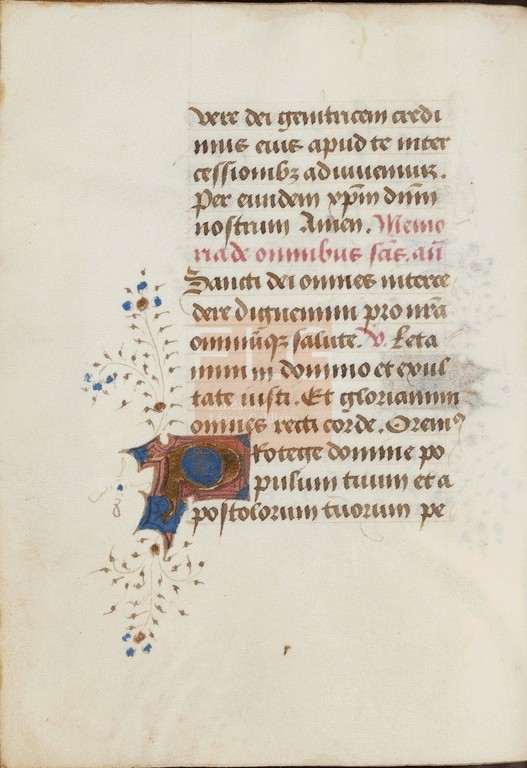 vere dei genitricem credi
mus eius apud te inter
cessionibꝫ adiuuemur.
Per eundem xp̄m dn̄m
nostrum Amen. Memo
ria de omnibus sc̄is. an̄
Sancti dei omnes interce
dere dignemini pro nr̄a
omniūqꝫ salute. V. Leta
mini in domino et exul
tate iusti. Et gloriamini
omnes recti corde. Oremꝰ
Protege domine po
pulum tuum et a
postolorum tuorum pe